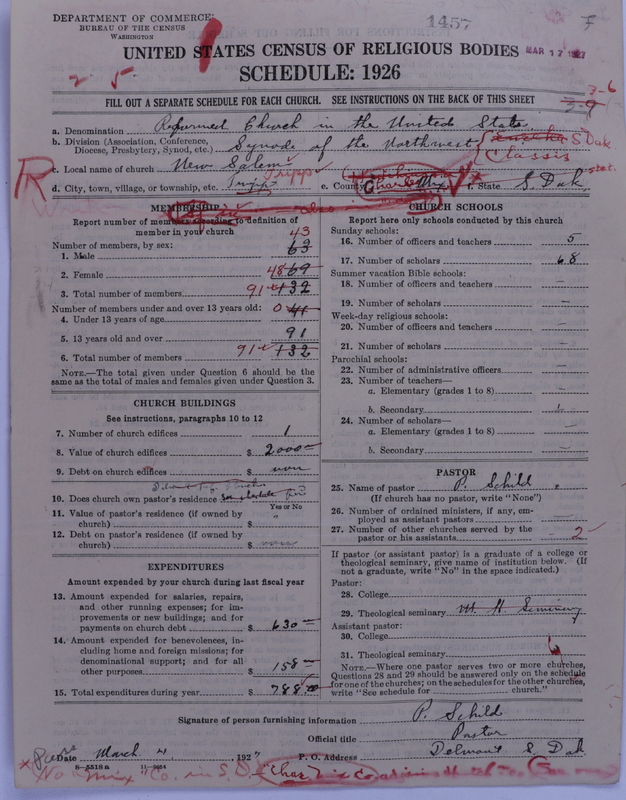 DEPARTMENT OF COMMERCE
BUREAU OF THE CENSUS
WASHINGTON
1457
UNITED STATES CENSUS OF RELIGIOUS BODIES
MAR 17 1927
SCHEDULE: 1926
FILL OUT A SEPARATE SCHEDULE FOR EACH CHURCH. SEE INSTRUCTIONS ON THE BACK OF THIS SHEET
3-6
3-9
a. Denomination Reformed Church in the United States
b. Division (Association, Conference, Diocese, Presbytery, Synod, etc.) Synode of the Northwest S Dak Classis
c. Local name of church New Salem
d. City, town, village, or township, etc. Tripp Tripp e. County Charles Mix f. State S. Dak
R
MEMBERSHIP
Report number of members according to definition of
member in your church
Number of members, by sex: 43
1. Male 63
2. Female 48 69
3. Total number of members 91 132
Number of members under and over 13 years old:
4. Under 13 years of age 0 41
5. 13 years old and over 91
6. Total number of members 91 132
NOTE.—The total given under Question 6 should be
the same as the total of males and females given under Question 3.
CHURCH BUILDINGS
See instructions, paragraphs 10 to 12
7. Number of church edifices 1
8. Value of church edifices $ 2000
9. Debt on church edifices $ none
10. Does church own pastor's residence
Yes or No
11. Value of pastor's residence (if owned by
church) $ "
12. Debt on pastor's residence (if owned by
church) $ none
EXPENDITURES
Amount expended by your church during last fiscal year
13. Amount expended for salaries, repairs,
and other running expenses; for im-
provements or new buildings; and for
payments on church debt $ 630
14. Amount expended for benevolences, in-
cluding home and foreign missions; for
denominational support; and for all
other purposes $ 158
15. Total expenditures during year $ 788
CHURCH SCHOOLS
Report here only schools conducted by this church
Sunday schools:
16. Number of officers and teachers 5
17. Number of scholars 68
Summer vacation Bible schools:
18. Number of officers and teachers —
19. Number of scholars —
Week-day religious schools:
20. Number of officers and teachers —
21. Number of scholars —
Parochial schools:
22. Number of administrative officers —
23. Number of teachers—
a. Elementary (grades 1 to 8) —
b. Secondary
24. Number of scholars—
a. Elementary (grades 1 to 8) —
b. Secondary —
PASTOR
25. Name of pastor P. Schild
(If church has no pastor, write "None")
26. Number of ordained ministers, if any, em-
ployed as assistant pastors
27. Number of other churches served by the
pastor or his assistants 2
If pastor (or assistant pastor) is a graduate of a college or
theological seminary, give name of institution below. (If
not a graduate, write "No" in the space indicated.)
Pastor:
28. College
29. Theological seminary M. H. Seminary
Assistant pastor:
30. College
31. Theological seminary
NOTE.—Where one pastor serves two or more churches,
Questions 28 and 29 should be answered only on the schedule
for one of the churches; on the schedules for the other churches,
write "See schedule for ______ church."
Signature of person furnishing information P. Schild
Official title Pastor
Date March 4, 1927 P. O. Address Delmont S. Dak
8—5518a 11—9654
No "Mix" Co. in S. D.